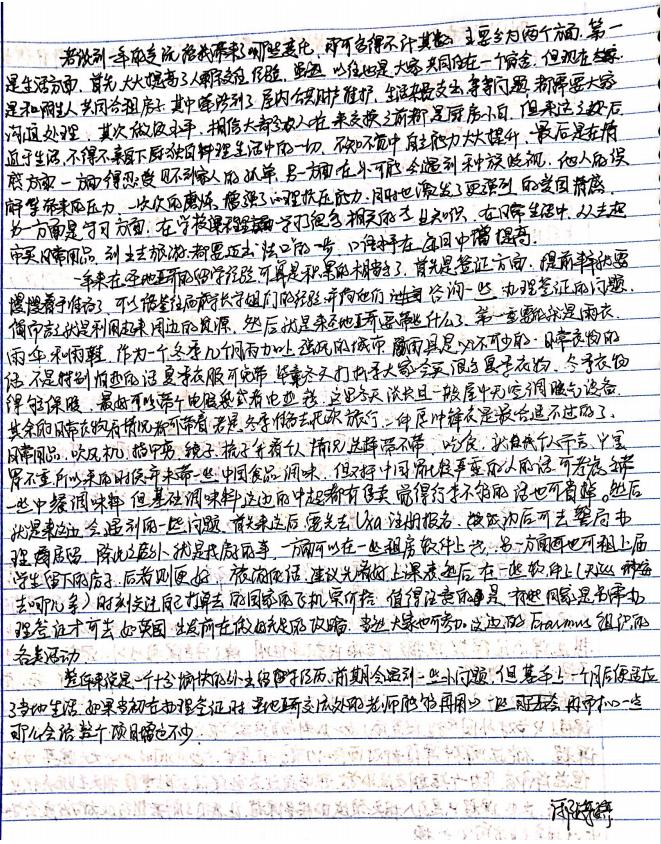 若谈到一年的交流给我带来了哪些变化，那可谓得不计其数，主要分为两个方面，第一
是生活方面，首先大大提高了人际交往经验，虽然以往也是大家共同住在一个宿舍，但现在
是和陌生人共同合租房子，其中牵涉到了屋内公共维护，生活费支出等等问题，都需要大家
沟通处理，其次做饭水平，相信大部分人在来交换之前都是厨房小白，但来这之后
迫于生活，不得不亲自下厨，独自料理生活中的一切，不知不觉中自主能力大大提升，最后是在情
感方面，一方面得忍受见不到家人的孤单，另一方面在外可能会遇到种族歧视，他人的误
解等带来的压力，一次次的磨炼，增强了心理抗压能力，同时也激发了更强烈的爱国情感。
另一方面是学习方面，在学校课程学习了很多相关的专业知识，在日常生活中，从去超
市买日常用品，到出去旅游，都要迈出张口的一步，口语水平在每日中增提高。
一年来在圣地亚哥的留学经验可算是积累的相当多了，首先是签证方面，提前半年就要
慢慢着手准备了，可以借鉴往届前辈学姐们的经验，并向他们咨询一些办理签证的问题，
简而言之就是利用起来周边的资源，然后就是来圣地亚哥要带些什么了，第一重要就是雨衣、
雨伞和雨鞋，作为一个冬季几个月雨力以上强风的城市，雨具是必不可少的，日常衣物的
话，不是特别怕热的话夏季衣服可少带，毕竟冬天打折季大家会买很多夏季衣物，冬季衣物
得够保暖，最好可以带个电暖气或者电热毯，这里冬天漫长且一般屋中无空调暖气设备，
其余的日常衣物看情况都可带着，若是冬季准备去北欧旅行，一件厚冲锋衣是最合适不过的了，
日常用品，吹风机，指甲剪，镜子，梳子，看个人情况选择带不带，吃食，就我个人而言，中国
胃不重，所以来的时候并未带一些中国食品调味，但对于中国胃比较严重的人的话可考虑多带
一些中餐调味料，但基础调味料这边的中超都有售卖，觉得行李不够的话也可省掉。然后
就是来这边会遇到的一些问题，首先来这后要先去Usc注册报名，做成功后可去警局办
理居留，除此之外就是找房的事，一方面可以在一些租房软件上找，另一方面也可租上届
学生留下的房子，后者则更好，旅游的话，建议先看好上课表然后在一些软件上（
去哪儿等）时刻关注自己打算去的国家的飞机票价格，值得注意的是有些国家是需要办
理签证才可去，如英国，出发前在做好充足的攻略，当然大家也可参加这边的Erasmus组织的
各类活动
整年来说是一个十分愉快的外出留学经历，前期会遇到一些小问题，但基本上一个月后便适应
了当地生活，如果当初在办理签证时圣地亚哥交流处的老师能够再用心一些
那么会给整个项目增色不少。